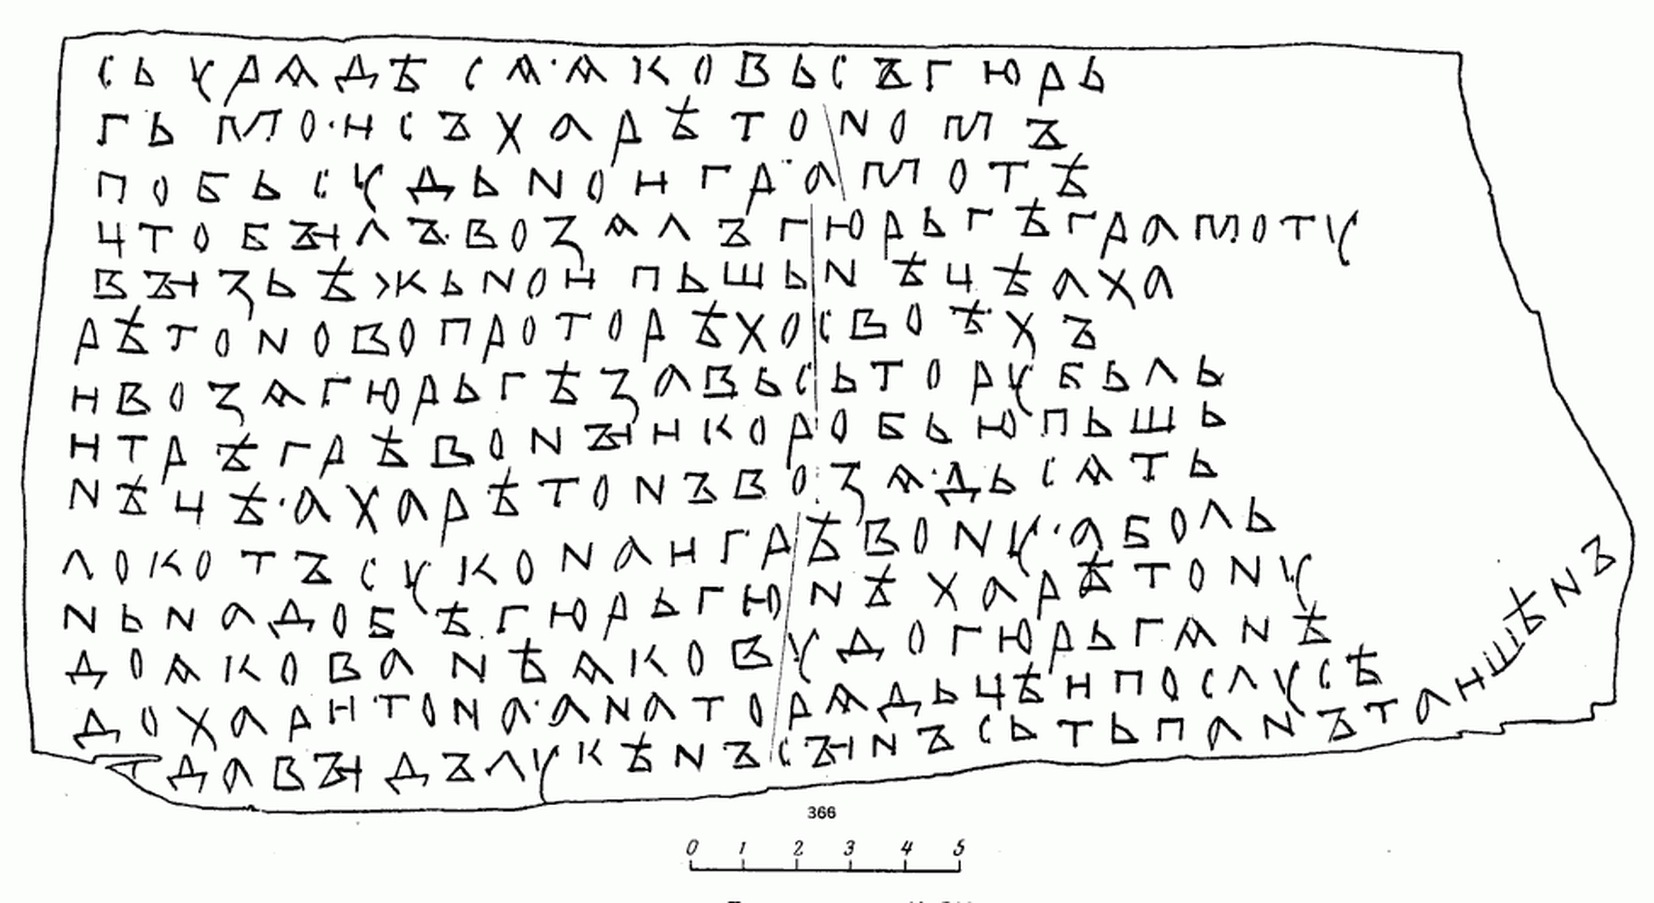 сь урѧдѣсѧ·ѧковьсъгюрь
гьмо·исъхарѣтономъ
побьсудьноиграмотѣ
цтобꙑлъ·возѧлъгюрьгѣграмоту
вꙑзьѣжьноипьшьнѣцѣаха
рѣтоновопроторѣхосвоѣхъ
ивозѧгюрьгѣзавьсьторубьль
итрѣгрѣвонꙑикоробьюпьшь
нѣцѣ·ахарѣтонъвозѧ·дьсѧть
локотъсуконаигрѣвону·аболь
ньнадобѣгюрьгюнѣхарѣтону
доѧкованѣѧковудогюрьгѧнѣ
дохаритона·анаторѧдьцѣипослусѣ
тдавꙑдълукѣнъсꙑнъсьтьпанътаишѣнъ
366
0 1 2 3 4 5